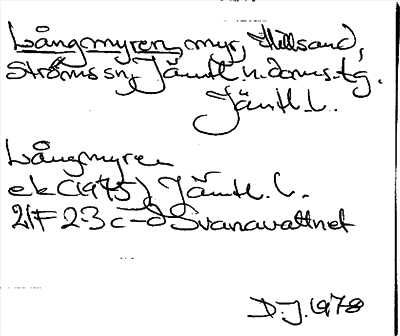 Långmyren, myr, Hillsand,
Ströms sn, Jämtl. n. doms. tg.
Jämtl. l.
Långmyren
ek (1975), Jämtl. l.
21F 2-3 c-d Svanavattnet
D.J. 1978